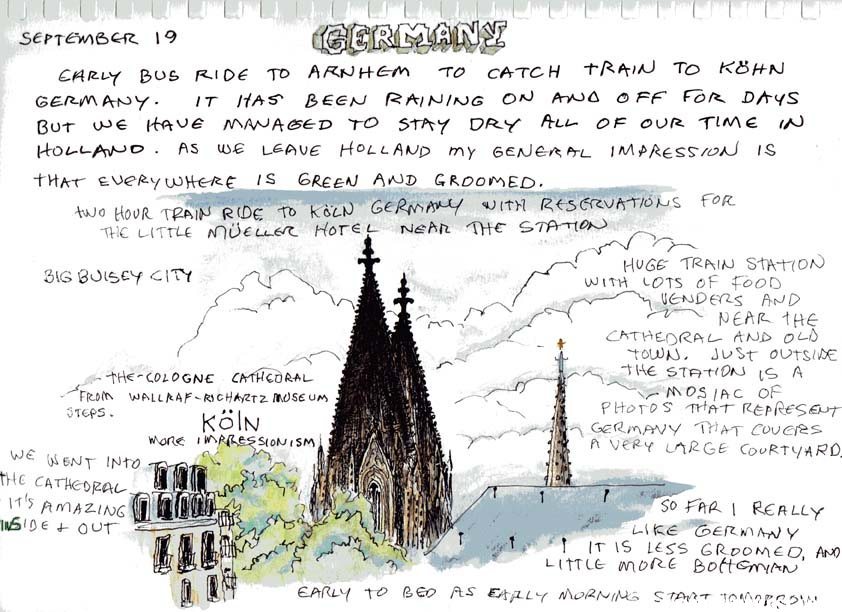 SEPTEMBER 19
GERMANY
EARLY BUS RIDE TO ARNHEM TO CATCH TRAIN TO KÖHN
GERMANY. IT HAS BEEN RAINING ON AND OFF FOR DAYS
BUT WE HAVE MANAGED TO STAY DRY ALL OF OUR TIME IN
HOLLAND. AS WE LEAVE HOLLAND MY GENERAL IMPRESSION IS
THAT EVERYWHERE IS GREEN AND GROOMED.
TWO HOUR TRAIN RIDE TO KÖLN GERMANY WITH RESERVATIONS FOR
THE LITTLE MÜELLER HOTEL NEAR THE STATION
BIG BUISEY CITY
HUGE TRAIN STATION
WITH LOTS OF FOOD
VENDERS AND
NEAR THE
CATHEDRAL AND OLD
TOWN. JUST OUTSIDE
THE STATION IS A
MOSIAC OF
PHOTOS THAT REPRESENT
GERMANY THAT COVERS
A VERY LARGE COURTYARD.
THE COLOGNE CATHEDRAL
FROM WALLRAF-RICHARTZ MUSEUM
STEPS.
KÖLN
MORE IMPRESSIONISM
WE WENT INTO
THE CATHEDRAL
IT'S AMAZING
INSIDE + OUT
SO FAR I REALLY
LIKE GERMANY
IT IS LESS GROOMED, AND
LITTLE MORE BOHEMIAN
EARLY TO BED AS EARLY MORNING START TOMORROW